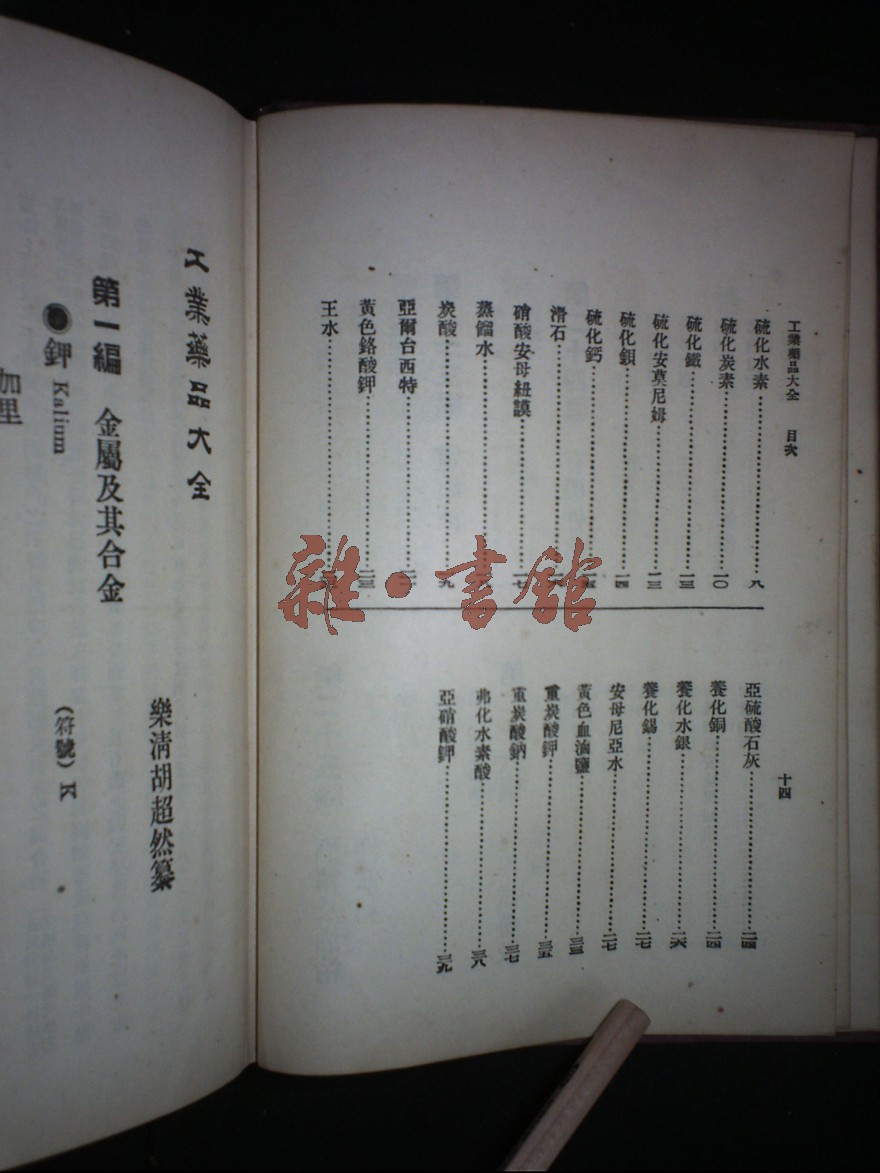 工業藥品大全 目次 十四
硫化水素 八
硫化炭素 一〇
硫化鐵 一三
硫化安莫尼姆 一三
硫化鋇 一四
硫化鈣
滑石
硝酸安母紐謨 一七
蒸餾水
炭酸
亞爾台西特
黃色鉻酸鉀
王水
亞硫酸石灰 二四
養化銅 二四
養化水銀 二六
養化錫 二七
安母尼亞水 二七
黃色血滷鹽 三三
重炭酸鉀 三五
重炭酸鈉 三七
弗化水素酸 三八
亞硝酸鉀 三九
工業藥品大全
樂清胡超然纂
第一編 金屬及其合金
鉀 Kalium (符號) K
加里
雜·書館